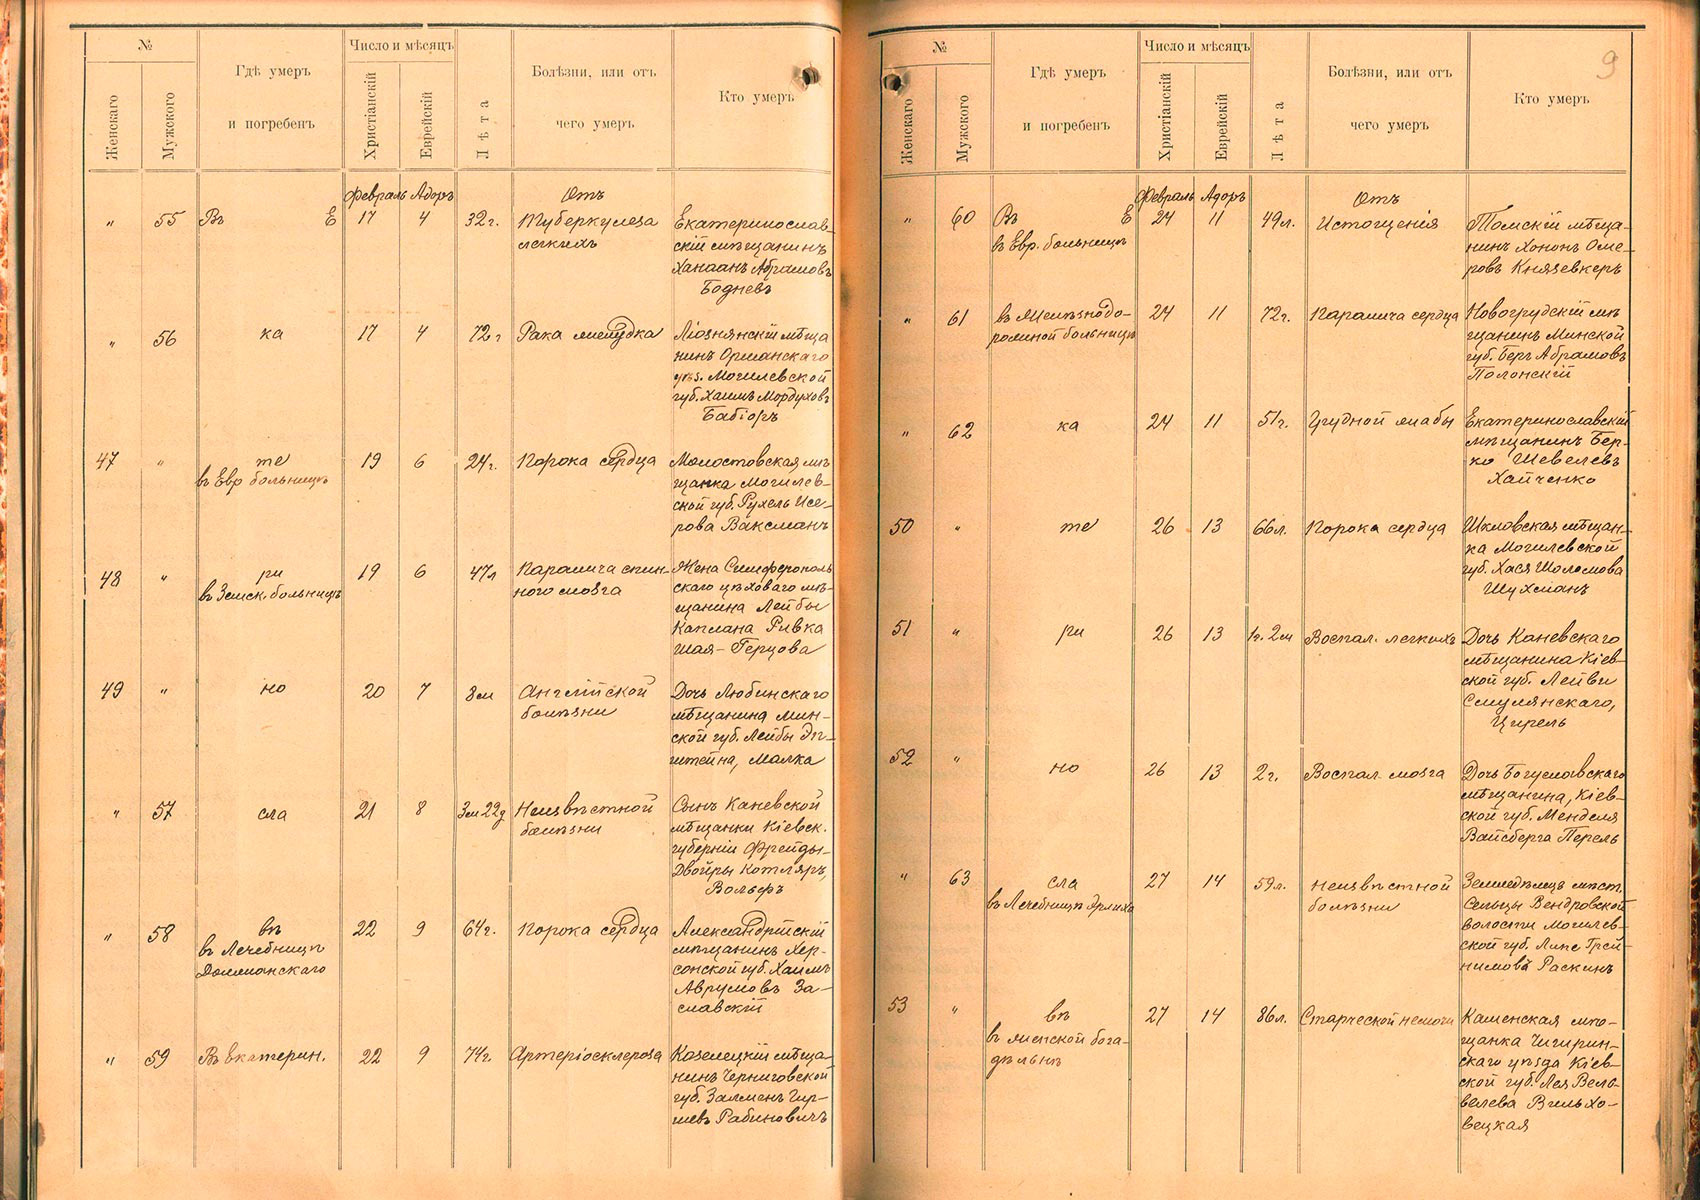 №
Женскаго
Мужского
Гдѣ умеръ
и погребенъ
Число и мѣсяцъ
Христіанскій
Еврейскій
Лѣта
Болѣзни, или отъ
чего умеръ
Кто умеръ
Февраль Адоръ
Отъ
" 55 Въ Е 17 4 32г. Туберкулеза
легкихъ
Екатеринослав-
скій мѣщанинъ
Ханаанъ Абрамовъ
Бодневъ
" 56 ка 17 4 72г Рака желудка
Ліознянскій мѣща
нинъ Оршанскаго
уѣз. Могилевской
губ. Хаимъ Мордуховъ
Бабіоръ
47 " те 19 6 24г. Порока сердца
въ Евр больницѣ
Молостовская мѣ
щанка Могилев-
ской губ. Рухель Исе-
рова Ваксманъ
48 " ри 19 6 47л Паралича спин-
ного мозга
въ Земск. больницѣ
Жена Симферополь
скаго цѣховаго мѣ-
щанина Лейбы
Каплана Ривка
Шая-Герцова
49 " но 20 7 8м Английской
болѣзни
Дочь Любинскаго
мѣщанина Мин-
ской губ. Лейбы Эп-
штейна, Малка
" 57 сла 21 8 3м 22д Неизвѣстной
болѣзни
Сынъ Каневской
мѣщанки Кіевск.
губерніи Фрейды-
Двойры Котляръ,
Вольфъ
" 58 вѣ 22 9 64г. Порока сердца
въ Лечебницѣ
Александрійскій
мѣщанинъ Хер-
сонской губ. Хаимъ
Аврумовъ За-
славскій
" 59 Въ Екатерин. 22 9 74г. Артеріосклероза
Козелецкій мѣща-
нинъ Черниговской
губ. Залменъ Гир-
шевъ Рабиновичъ
9
№
Женскаго
Мужского
Гдѣ умеръ
и погребенъ
Число и мѣсяцъ
Христіанскій
Еврейскій
Лѣта
Болѣзни, или отъ
чего умеръ
Кто умеръ
Февраль Адоръ
Отъ
" 60 Въ Е 24 11 49л. Истощенія
въ Евр. больницѣ
Томскій мѣща-
нинъ Хононъ Оме-
ровъ Князевкеръ
" 61 въ Желѣзнодо- 24 11 72г. Паралича сердца
рожной больницѣ
Новогрудскій мѣ
щанинъ Минской
губ. Беръ Абрамовъ
Полонскій
" 62 ка 24 11 51г. Грудной жабы
Екатеринославскій
мѣщанинъ Бер-
ко Шевелевъ
Хайченко
50 " те 26 13 66л. Порока сердца
Шкловская мѣщан-
ка Могилевской
губ. Хася Шоломова
Шухманъ
51 " ри 26 13 1г. 2м Воспал. легкихъ
Дочь Каневскаго
мѣщанина Кіев-
ской губ. Лейви
Смулянскаго,
Цирель
52 " но 26 13 2г. Воспал. мозга
Дочь Богуславскаго
мѣщанина, Кіев-
ской губ. Менделя
Вайсберга Перель
" 63 сла 27 14 59л. Неизвѣстной
болѣзни
въ Лечебницѣ
Земледѣлецъ мѣст.
Сельцы Вендровской
волости Могилев-
ской губ. Липе
Раскинъ
53 " вѣ 27 14 86л. Старческой немочи
въ женской бога-
дѣльнѣ
Каменская мѣ-
щанка Чигирин-
скаго уѣзда Кіев-
ской губ. Лея Вель-
велева Вильхо-
вецкая